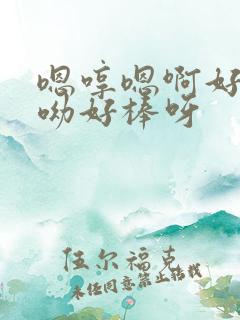 嗯哼嗯啊好
呦好棒呀
伍尔福克
未经同意禁止转载